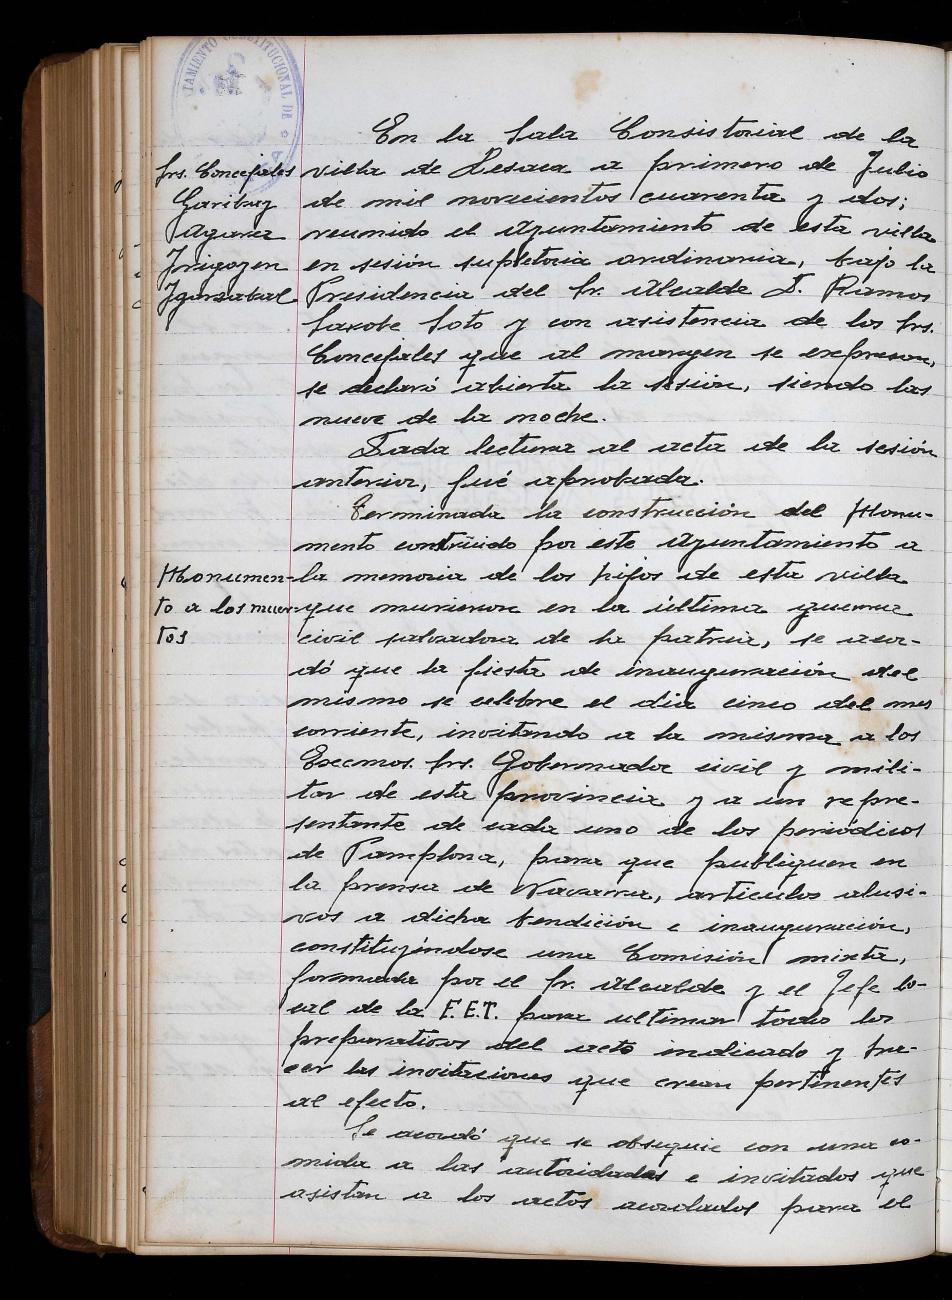 TAMIENTO CONSTITUCIONAL DE
En la Sala Consistorial de la
villa de Lesaca a primero de Julio
de mil novecientos cuarenta y dos;
reunido el Ayuntamiento de esta villa
en sesión supletoria ordinaria, bajo la
Presidencia del Sr. Alcalde D. Ramos
Soto y con asistencia de los Srs.
Concejales que al margen se expresan,
se declaró abierta la sesión, siendo las
nueve de la noche.
Srs. Concejales
Garibay
Irigoyen
Igarzabal
Dada lectura al acta de la sesión
anterior, fué aprobada.
Terminada la construcción del Monu-
mento contruido por este Ayuntamiento a
la memoria de los hijos de esta villa
que murieron en la última guerra
civil salvadora de la patria, se acor-
dó que la fiesta de inauguración del
mismo se celebre el día cinco del mes
corriente, invitando a la misma a los
Excmos. Srs. Gobernador civil y mili-
tar de esta provincia y a un repre-
sentante de cada uno de los periódicos
de Pamplona, para que publiquen en
la prensa de Navarra, artículos alusi-
vos a dicha bendición e inauguración,
constituyéndose una Comisión mixta,
formada por el Sr. Alcalde y el Jefe lo-
cal de la F.E.T. para ultimar todo los
preparativos del acto indicado y ha-
cer las invitaciones que crean pertinentes
al efecto.
Monumen-
to a los muer-
tos
Se acordó que se obsequie con una co-
mida a las autoridades e invitados que
asistan a los actos acordados para el